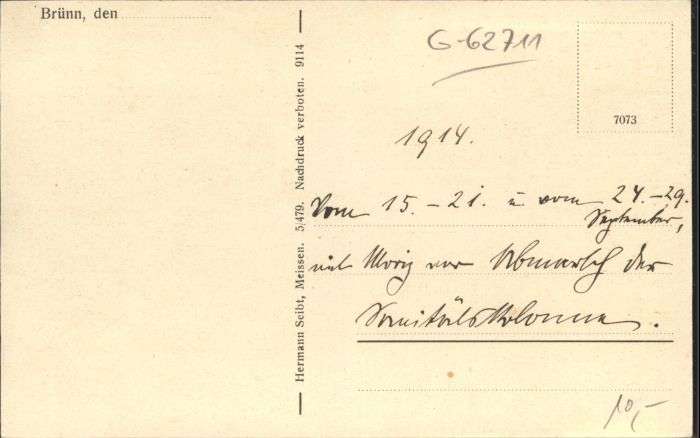 Brünn, den
Hermann Seibt, Meissen. 5/479. Nachdruck verboten. 9114
G-62711
7073
1914.
Vom 15. - 21. u vom 24. - 29.
September,
mit Moriz vor Abmarsch der
Sanitätskolonne.
10,-